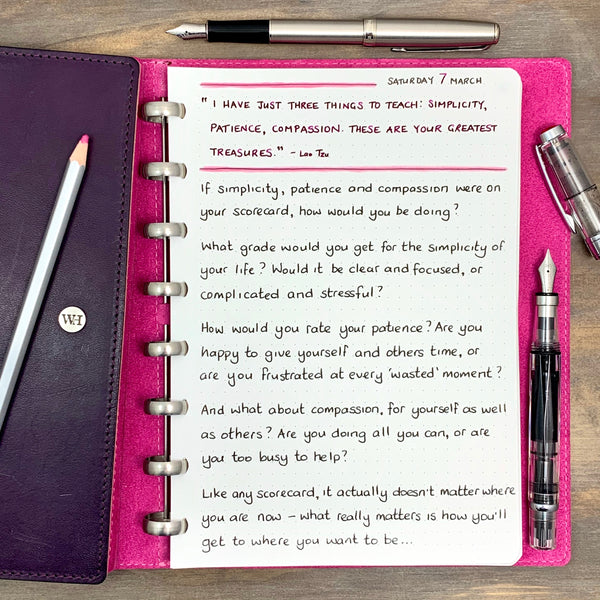 SATURDAY 7 MARCH
"I HAVE JUST THREE THINGS TO TEACH: SIMPLICITY,
PATIENCE, COMPASSION. THESE ARE YOUR GREATEST
TREASURES." - LAO TZU
If simplicity, patience and compassion were on
your scorecard, how would you be doing?
What grade would you get for the simplicity of
your life? Would it be clear and focused, or
complicated and stressful?
How would you rate your patience? Are you
happy to give yourself and others time, or
are you frustrated at every 'wasted' moment?
And what about compassion, for yourself as well
as others? Are you doing all you can, or are
you too busy to help?
Like any scorecard, it actually doesn't matter where
you are now - what really matters is how you'll
get to where you want to be...
WH